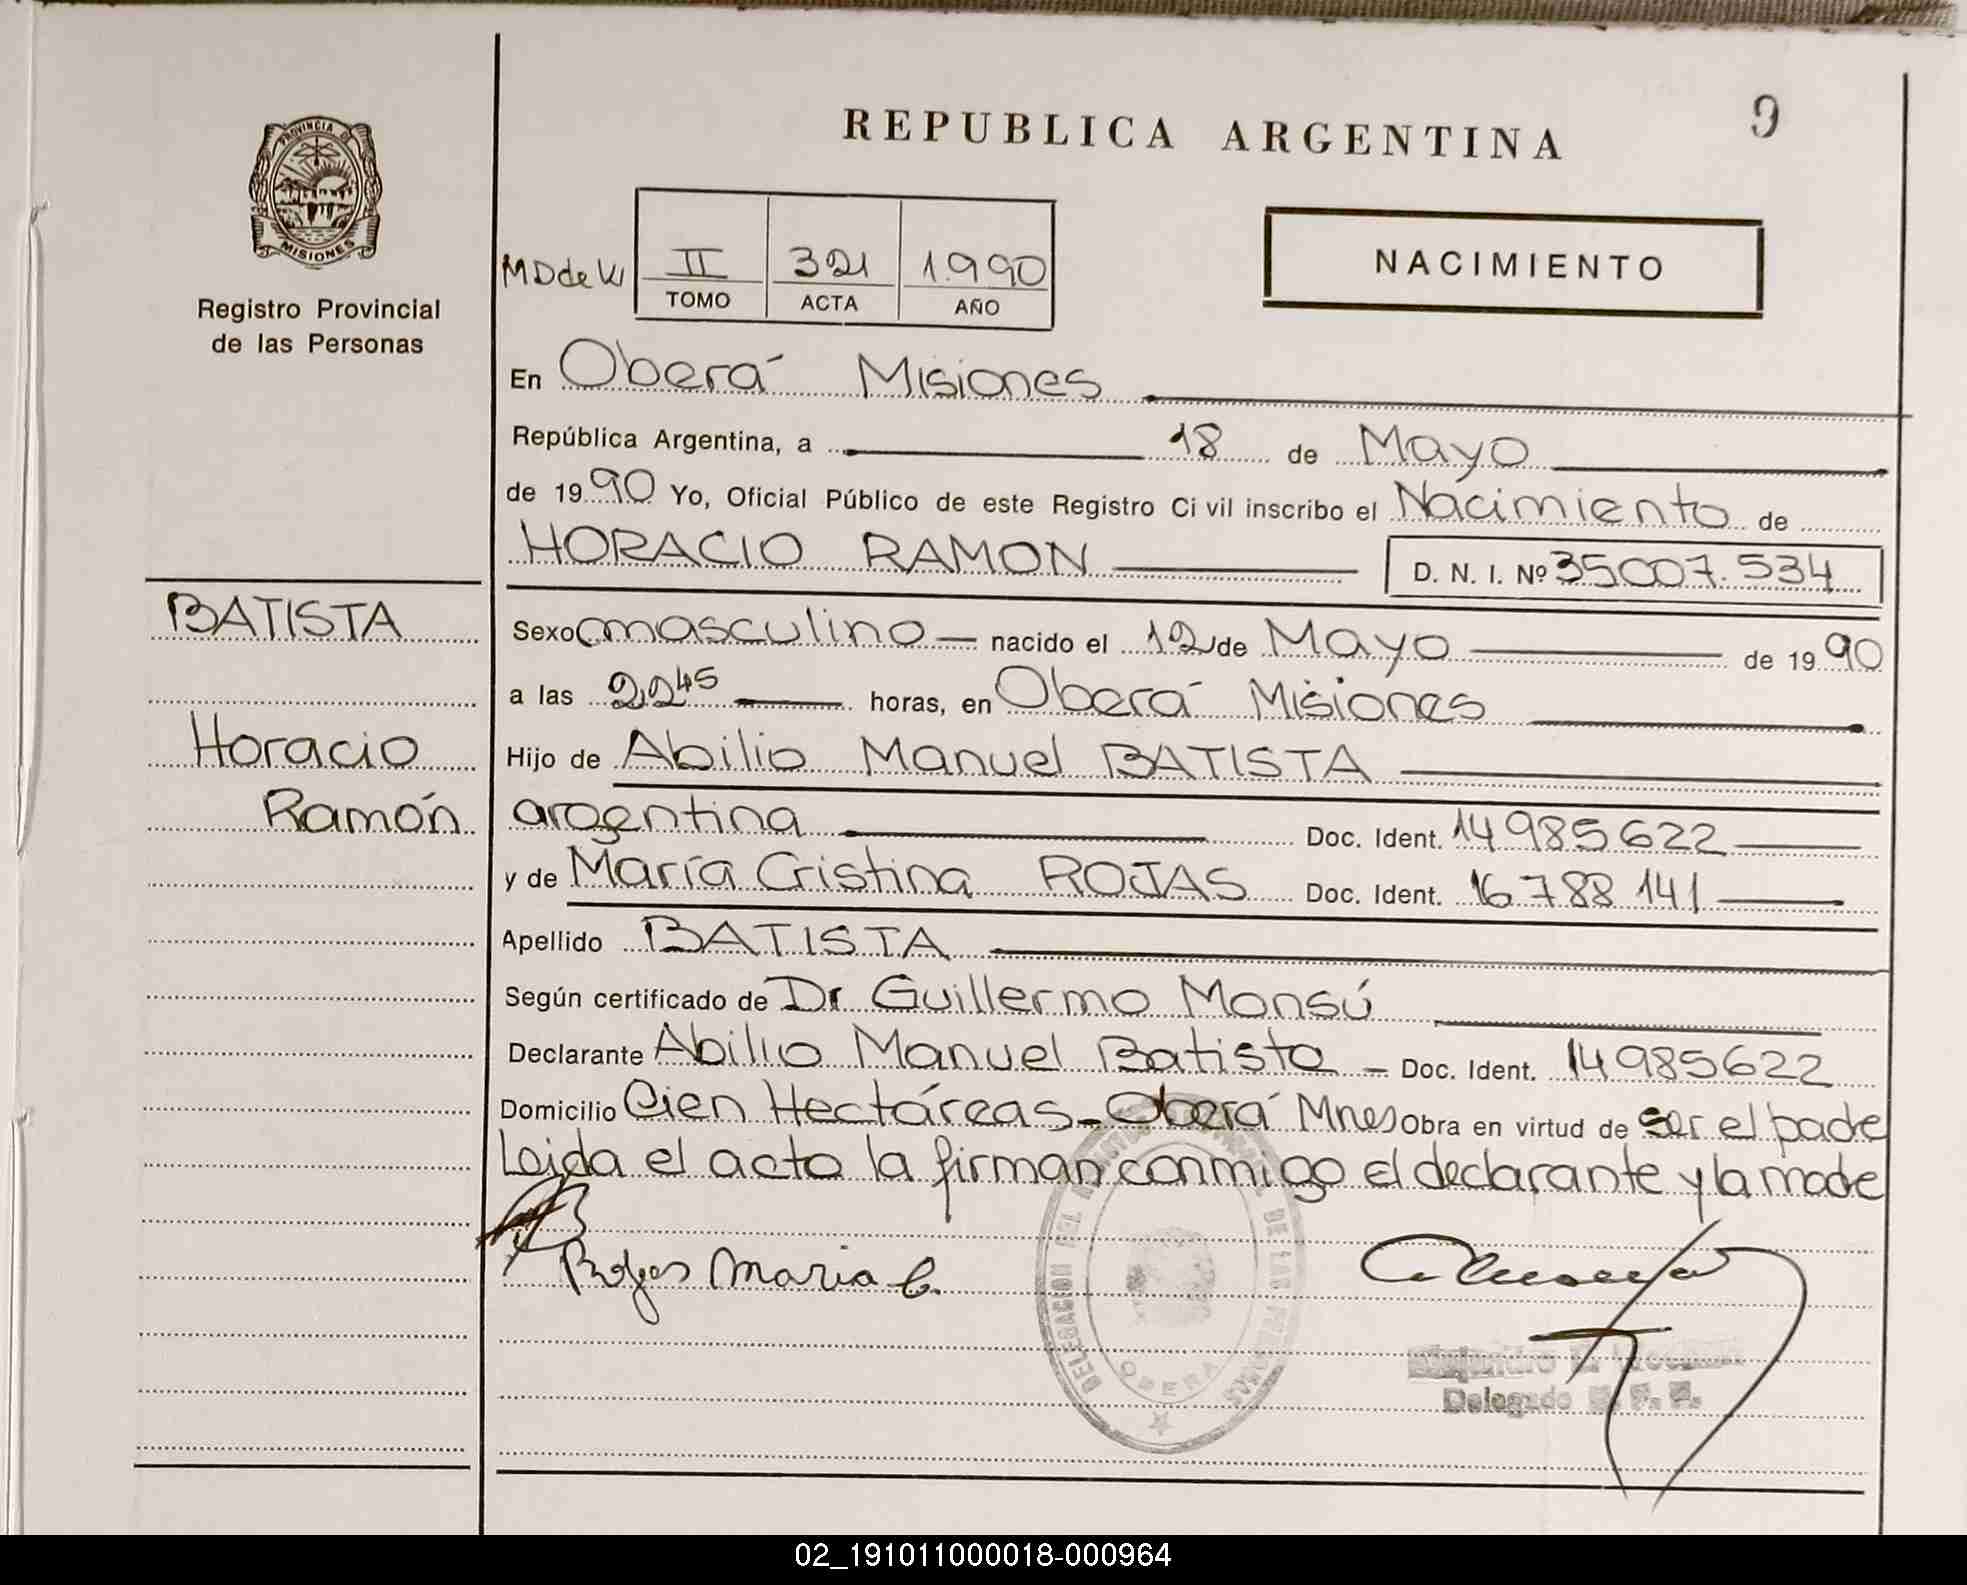 REPUBLICA ARGENTINA
9
PROVINCIA DE
MISIONES
Registro Provincial
de las Personas
MD de W
II 321 1.990
TOMO ACTA AÑO
NACIMIENTO
En Oberá Misiones
República Argentina, a 18 de Mayo
de 1990 Yo, Oficial Público de este Registro Civil inscribo el Nacimiento de
HORACIO RAMON D. N. I. Nº 35007.534
BATISTA
Horacio
Ramón
Sexo masculino nacido el 12 de Mayo de 1990
a las 22 45 horas, en Oberá Misiones
Hijo de Abilio Manuel BATISTA
argentina Doc. Ident. 14985622
y de María Cristina ROJAS Doc. Ident. 16788141
Apellido BATISTA
Según certificado de Dr Guillermo Monsú
Declarante Abilio Manuel Batista - Doc. Ident. 14985622
Domicilio Cien Hectáreas - Oberá Mnes Obra en virtud de ser el padre
Leida el acta la firman conmigo el declarante y la madre
Rojas Maria C.
DELEGACION DEL DE LAS
OBERA
Delegado
02_191011000018-000964